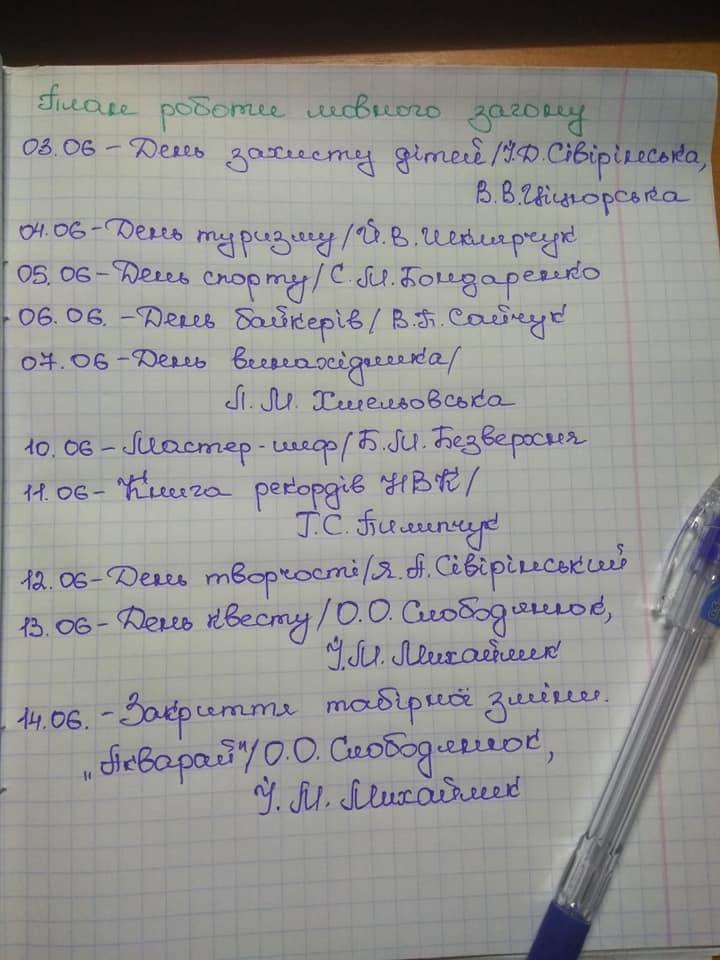 План роботи мовного загону
03.06 - День захисту дітей/І.Д. Сівірінська,
В.В.
04.06 - День туризму/Й.В. Шклярчук
05.06 - День спорту/С.М. Бондаренко
06.06. - День байкерів/В.П. Сайчук
07.06 - День винахідника/
Л.М. Хмельовська
10.06 - Мастер-шеф/Б.М. Безверсня
11.06 - Книга рекордів НВК/
Г.С. Пилипчук
12.06 - День творчості/Я.А. Сівірінський
13.06 - День квесту/О.О. Слободянюк,
І.М. Михайлик
14.06. - Закриття табірної зміни.
„Акварай"/О.О. Слободянюк,
І.М. Михайлик